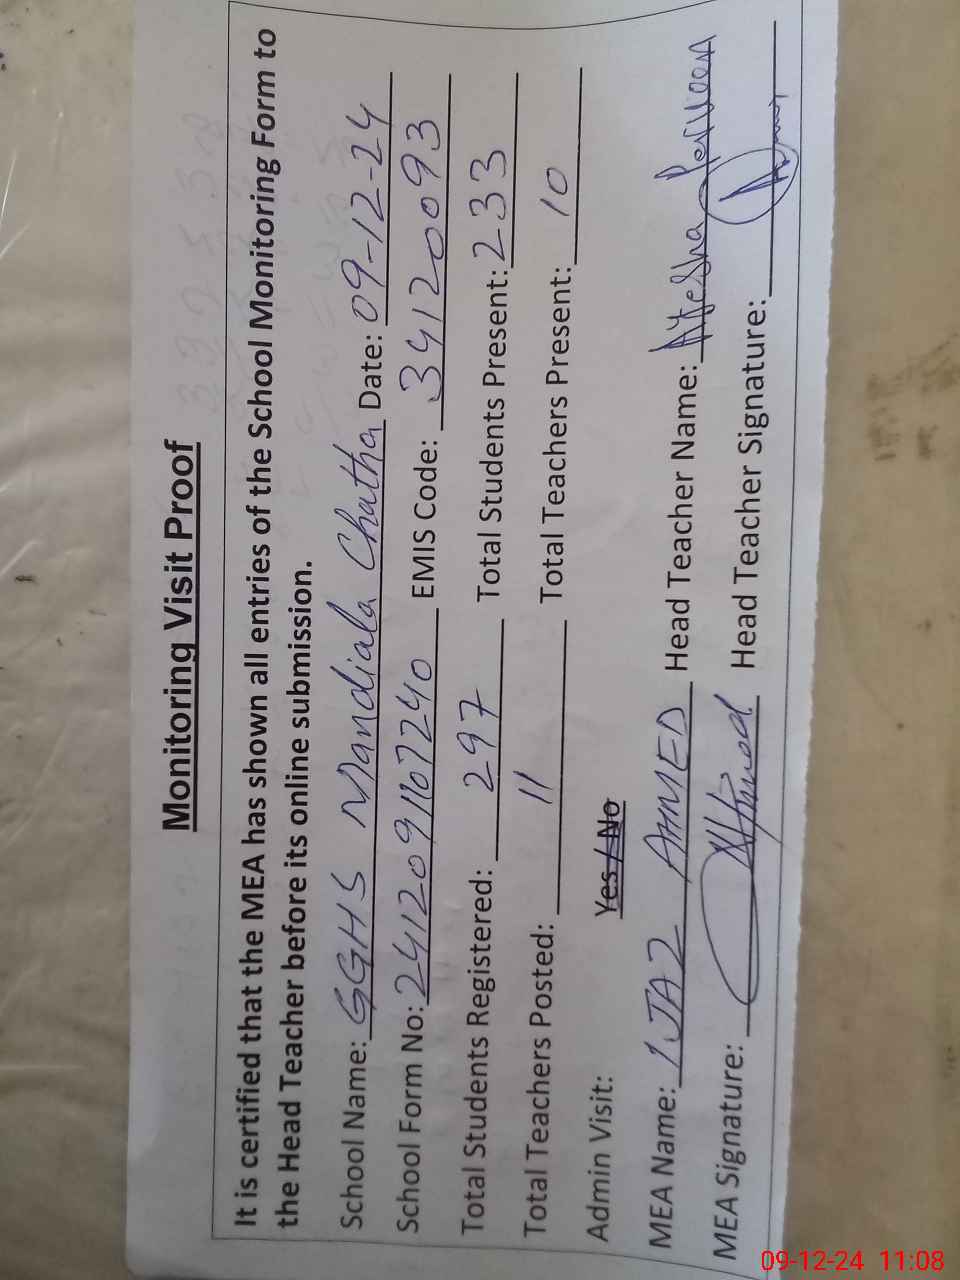 Monitoring Visit Proof
It is certified that the MEA has shown all entries of the School Monitoring Form to
the Head Teacher before its online submission.
School Name: GGHS Mandiala Chatha Date: 09-12-24
School Form No: 2412091107240 EMIS Code: 34120093
Total Students Registered: 297 Total Students Present: 233
Total Teachers Posted: 11 Total Teachers Present: 10
Admin Visit: Yes / No
MEA Name: IJAZ AHMED Head Teacher Name: Ayesha Perveen
MEA Signature: Head Teacher Signature:
09-12-24 11:08